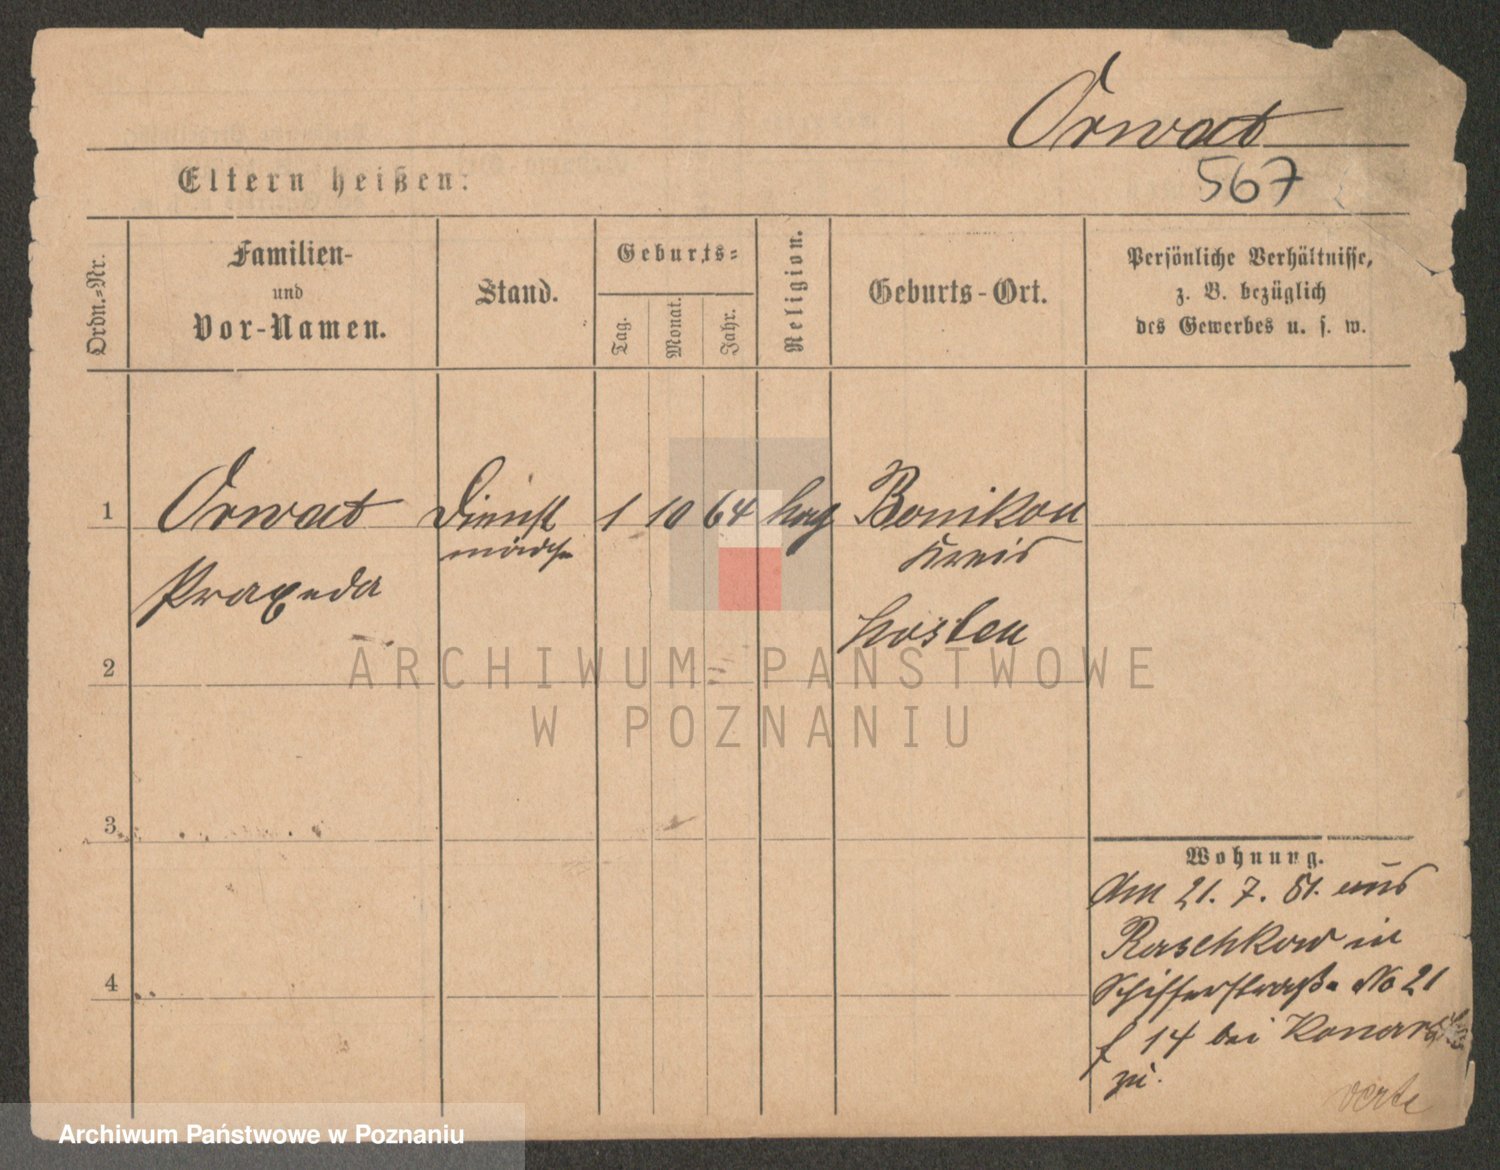 Orwat
Eltern heißen:
567
Ordn.-Nr.
Familien-
und
Vor-Namen.
Stand.
Geburts-
Tag.
Monat.
Jahr.
Religion.
Geburts-Ort.
Persönliche Verhältnisse,
z. B. bezüglich
des Gewerbes u. s. w.
1 Orwat Dienst 1 10 64 kath Bonikow
mädch Kreis
Praxeda
Kosten
2
ARCHIWUM PAŃSTWOWE
W POZNANIU
3
Wohnung.
Am 21. 7. 81. aus
Raschkow in
4
Schifferstraße No 21
f 14 bei
zu.
verte
Archiwum Państwowe w Poznaniu